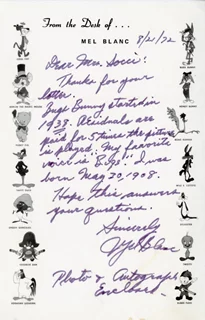 From the Desk of . . .
MEL BLANC
8/21/72
Dear Mrs. Socci:
Thanks for your
letter.
Bugs Bunny started in
1938. Residuals are
paid for 5 times the picture
is played. "My favorite
voice is "B.B." I was
born May 30, 1908.
Hope this answers
your questions.
Sincerely
Mel Blanc
Photo & Autograph
Enclosed.